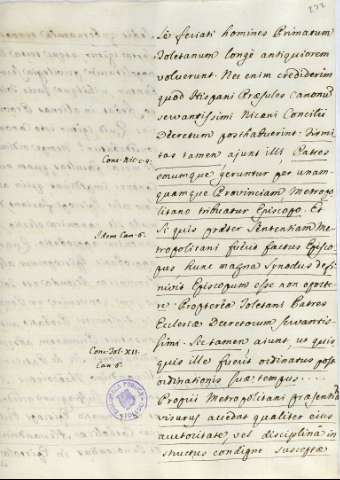 272
sè feriati homines Primatum
Toletanum longè antiquiorem
voluerunt. Nec enim crediderim
quod Hispani Præsules canonũ
servantissimi Nicæni Concilii
Decretum posthabuerint. Firmi
Conc. Nic. c. 4.
tas tamen, ajunt illi Patres
eorumque geruntur per unam-
quamque Provinciam, Metropo
litano tribuatur Episcopo. Et
Idem Can. 6.
Si quis præter Sententiam Me-
tropolitani fuerit factus Episco
pus hunc magna Synodus defi-
nivit Episcopum esse non oporte
re. Propterea Toletani Patres
Ecclesiæ Decretorum servantis-
simi. Sic tamen aiunt, ut quis
Conc. Tol. XII.
Can. 6.
quis ille fuerit ordinatus post
ordinationis suæ tempus....
Proprii Metropolitani præsentiã
visurus accedat qualiter eius
auctoritate, vel disciplinã in
structus condignè susceptæ
BIBLIOTECA PUBLICA
TOLEDO